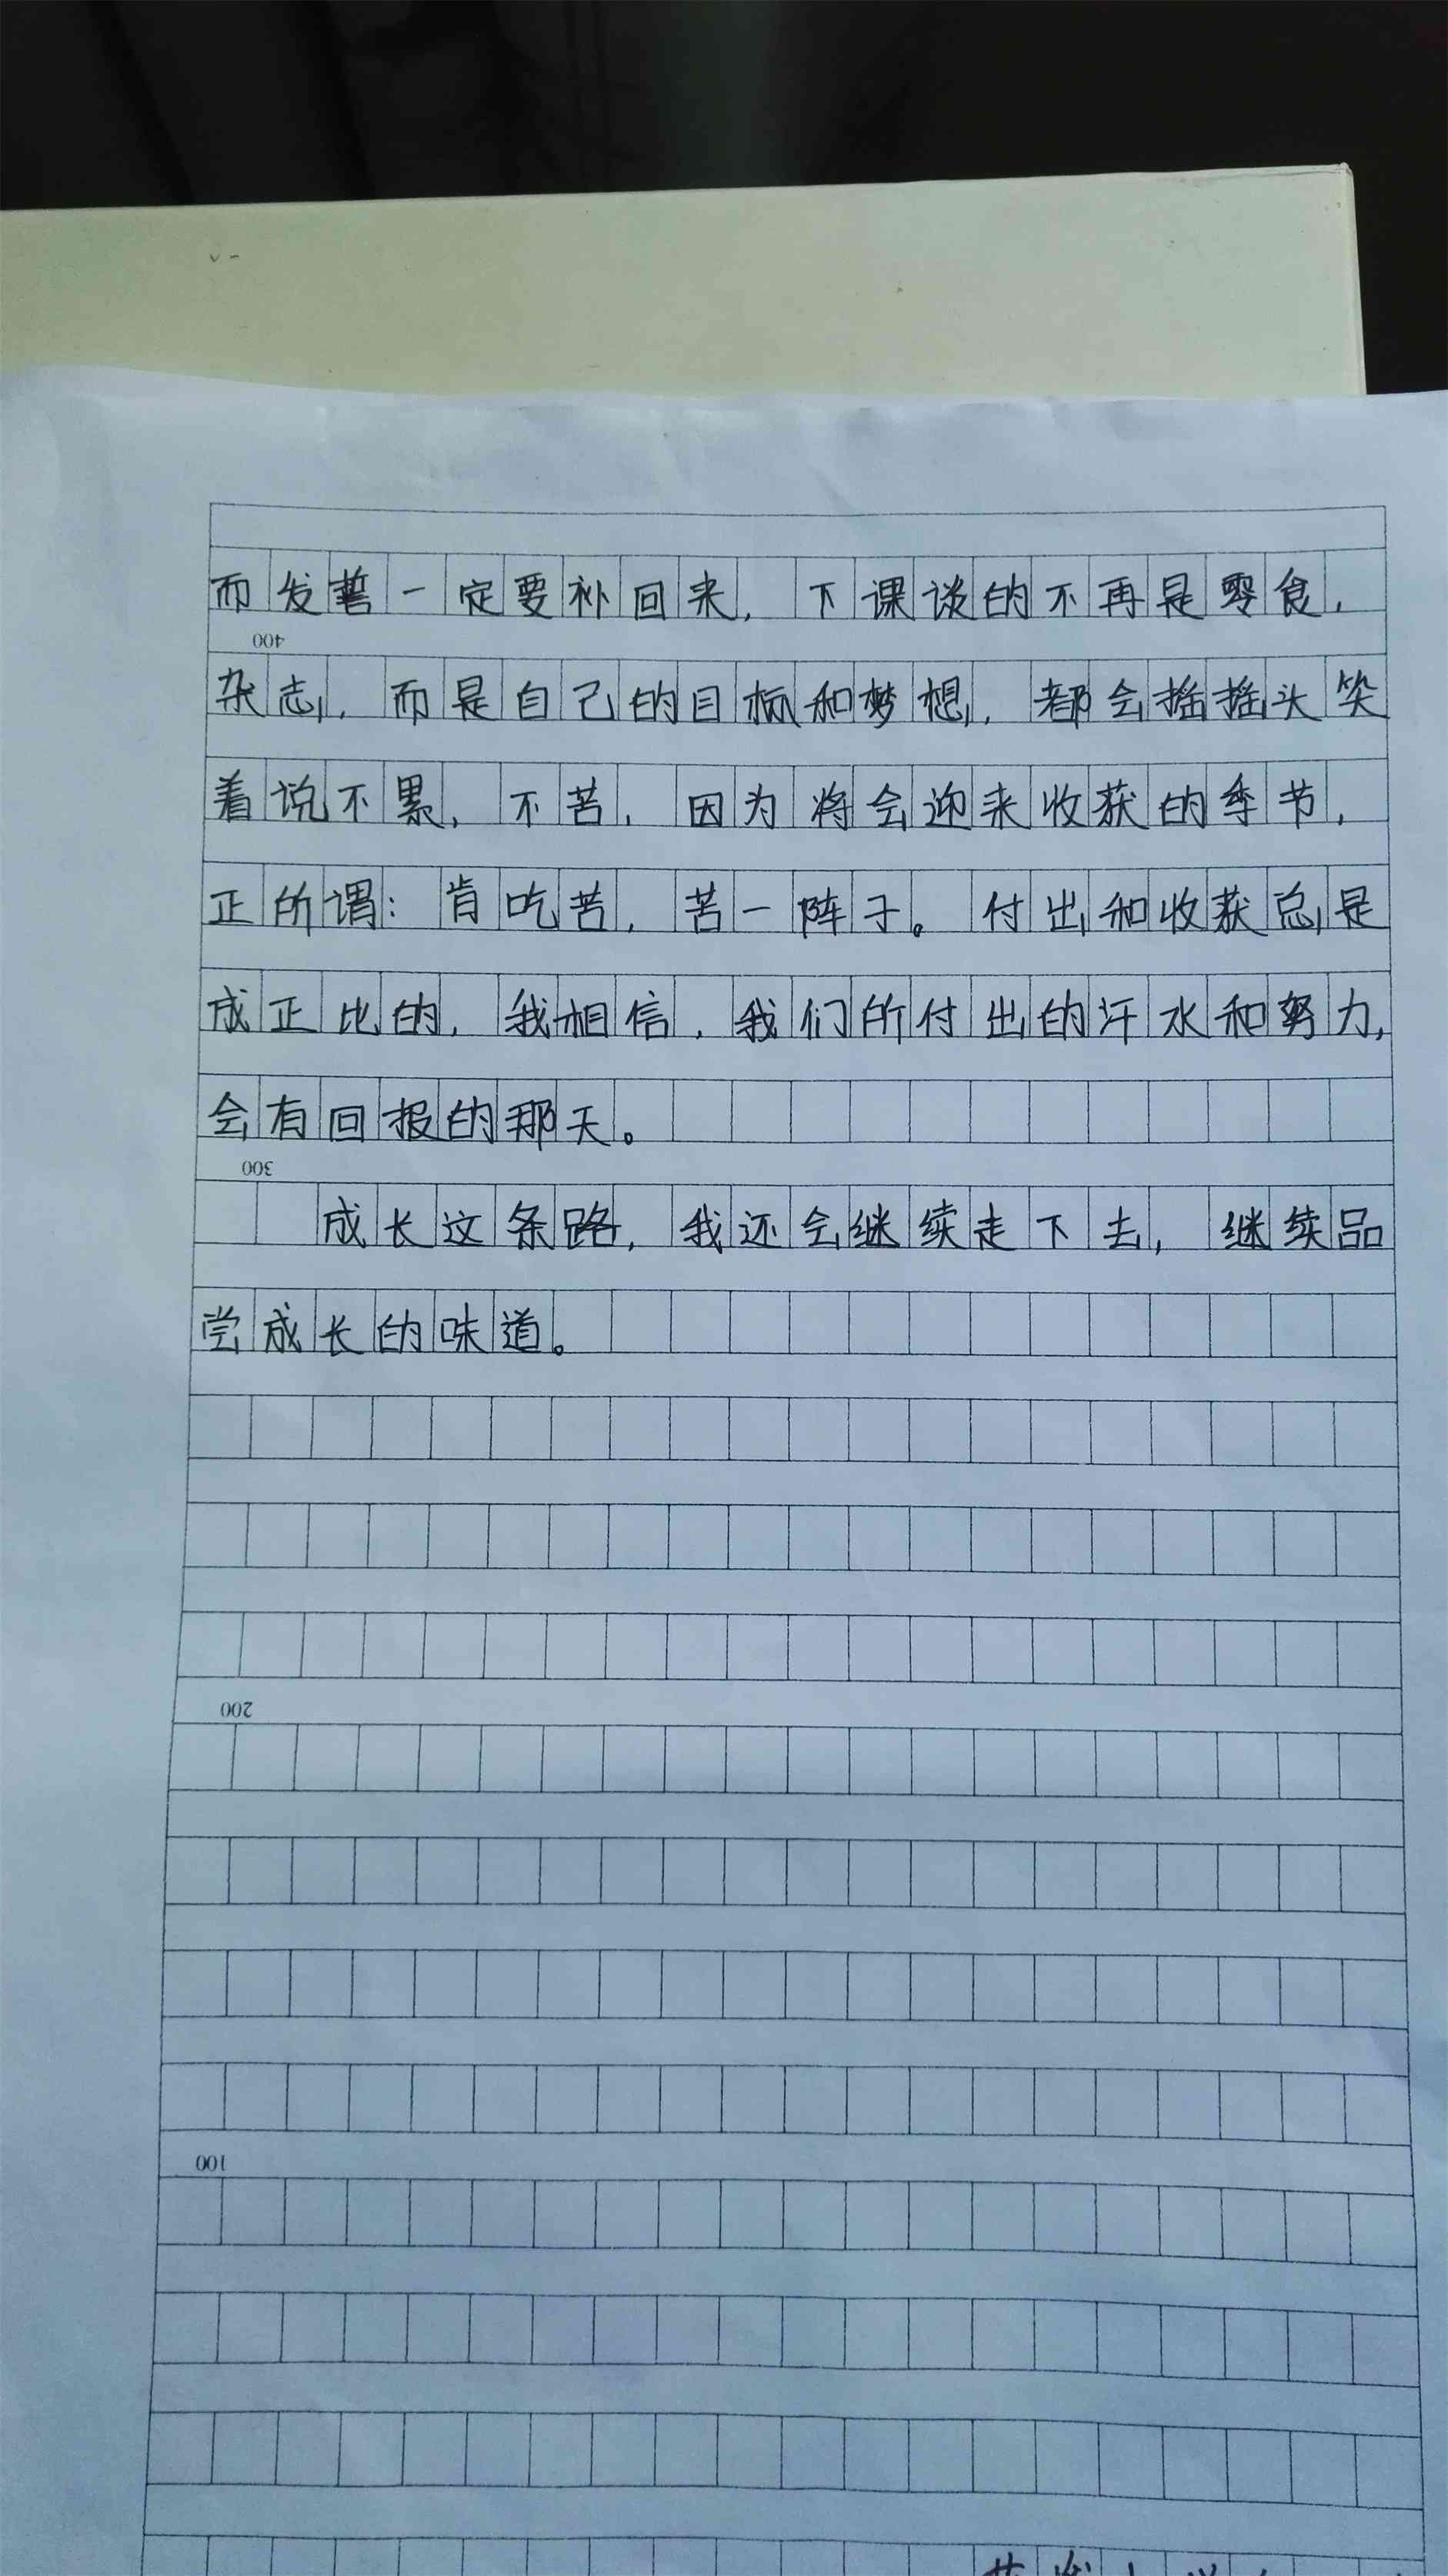 而发誓一定要补回来，下课谈的不再是零食，
400
杂志，而是自己的目标和梦想，都会摇摇头笑
着说不累，不苦，因为将会迎来收获的季节，
正所谓：肯吃苦，苦一阵子。付出和收获总是
成正比的，我相信，我们所付出的汗水和努力，
会有回报的那天。
300
成长这条路，我还会继续走下去，继续品
尝成长的味道。
200
100